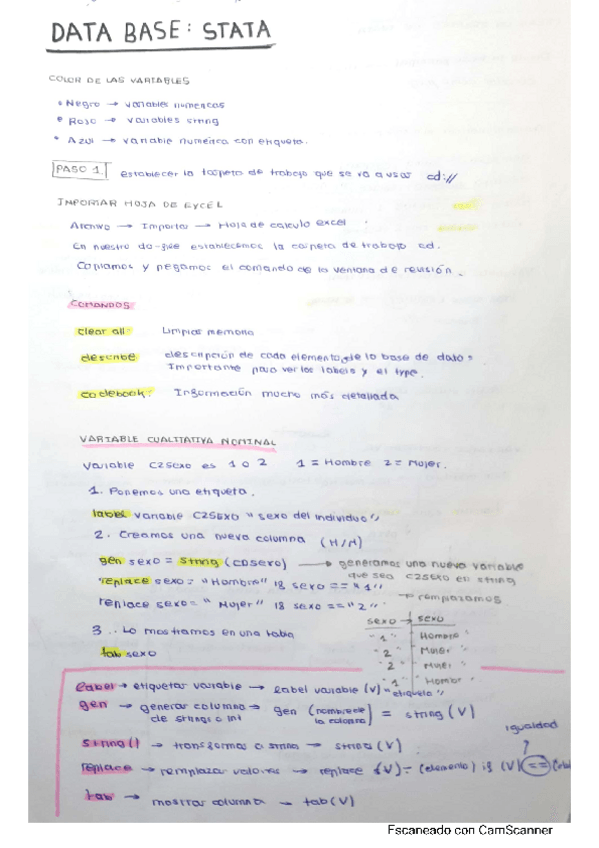 DATA BASE: STATA
COLOR DE LAS VARIABLES
• Negro → variables numericas
• Rojo → variables string
• Azul → variable numérica con etiqueta.
PASO 1. establecer la carpeta de trabajo que se va a usar cd://
IMPORTAR HOJA DE EXCEL
Archivo → Importar → Hoja de calculo excel
En nuestro do-file establecemos la carpeta de trabajo cd.
Copiamos y pegamos el comando de la ventana de revisión.
COMANDOS:
clear all: Limpiar memoria
describe descripción de cada elemento de la base de datos
Importante para ver los labels y el type.
codebook: Información mucho más detallada
VARIABLE CUALITATIVA NOMINAL
Variable C2SEXO es 1 o 2 1 = Hombre 2 = Mujer.
1. Ponemos una etiqueta.
label variable C2SEXO "sexo del individuo"
2. Creamos una nueva columna (H/M)
gen sexo = string (CDSEXO) → generamos una nueva variable
que sea C2SEXO en string
replace sexo = "Hombre" if sexo == "1"
→ remplazamos
replace sexo = "Mujer" if sexo == "2"
sexo → sexo
"1" Hombre "
"2 " Mujer "
"2 " Mujer "
"1" Hombre "
3. Lo mostramos en una tabla
tab sexo
label → etiquetar variable → label variable (V) "etiqueta"
gen → generar columna → gen (nombre de la columna) = string (V)
de strings o int
igualdad
string() → transformar a string → string (V)
replace → remplaza valores → replace (V) = (elemento) if (V) ==
tab → mostrar columna → tab (V)
Escaneado con CamScanner